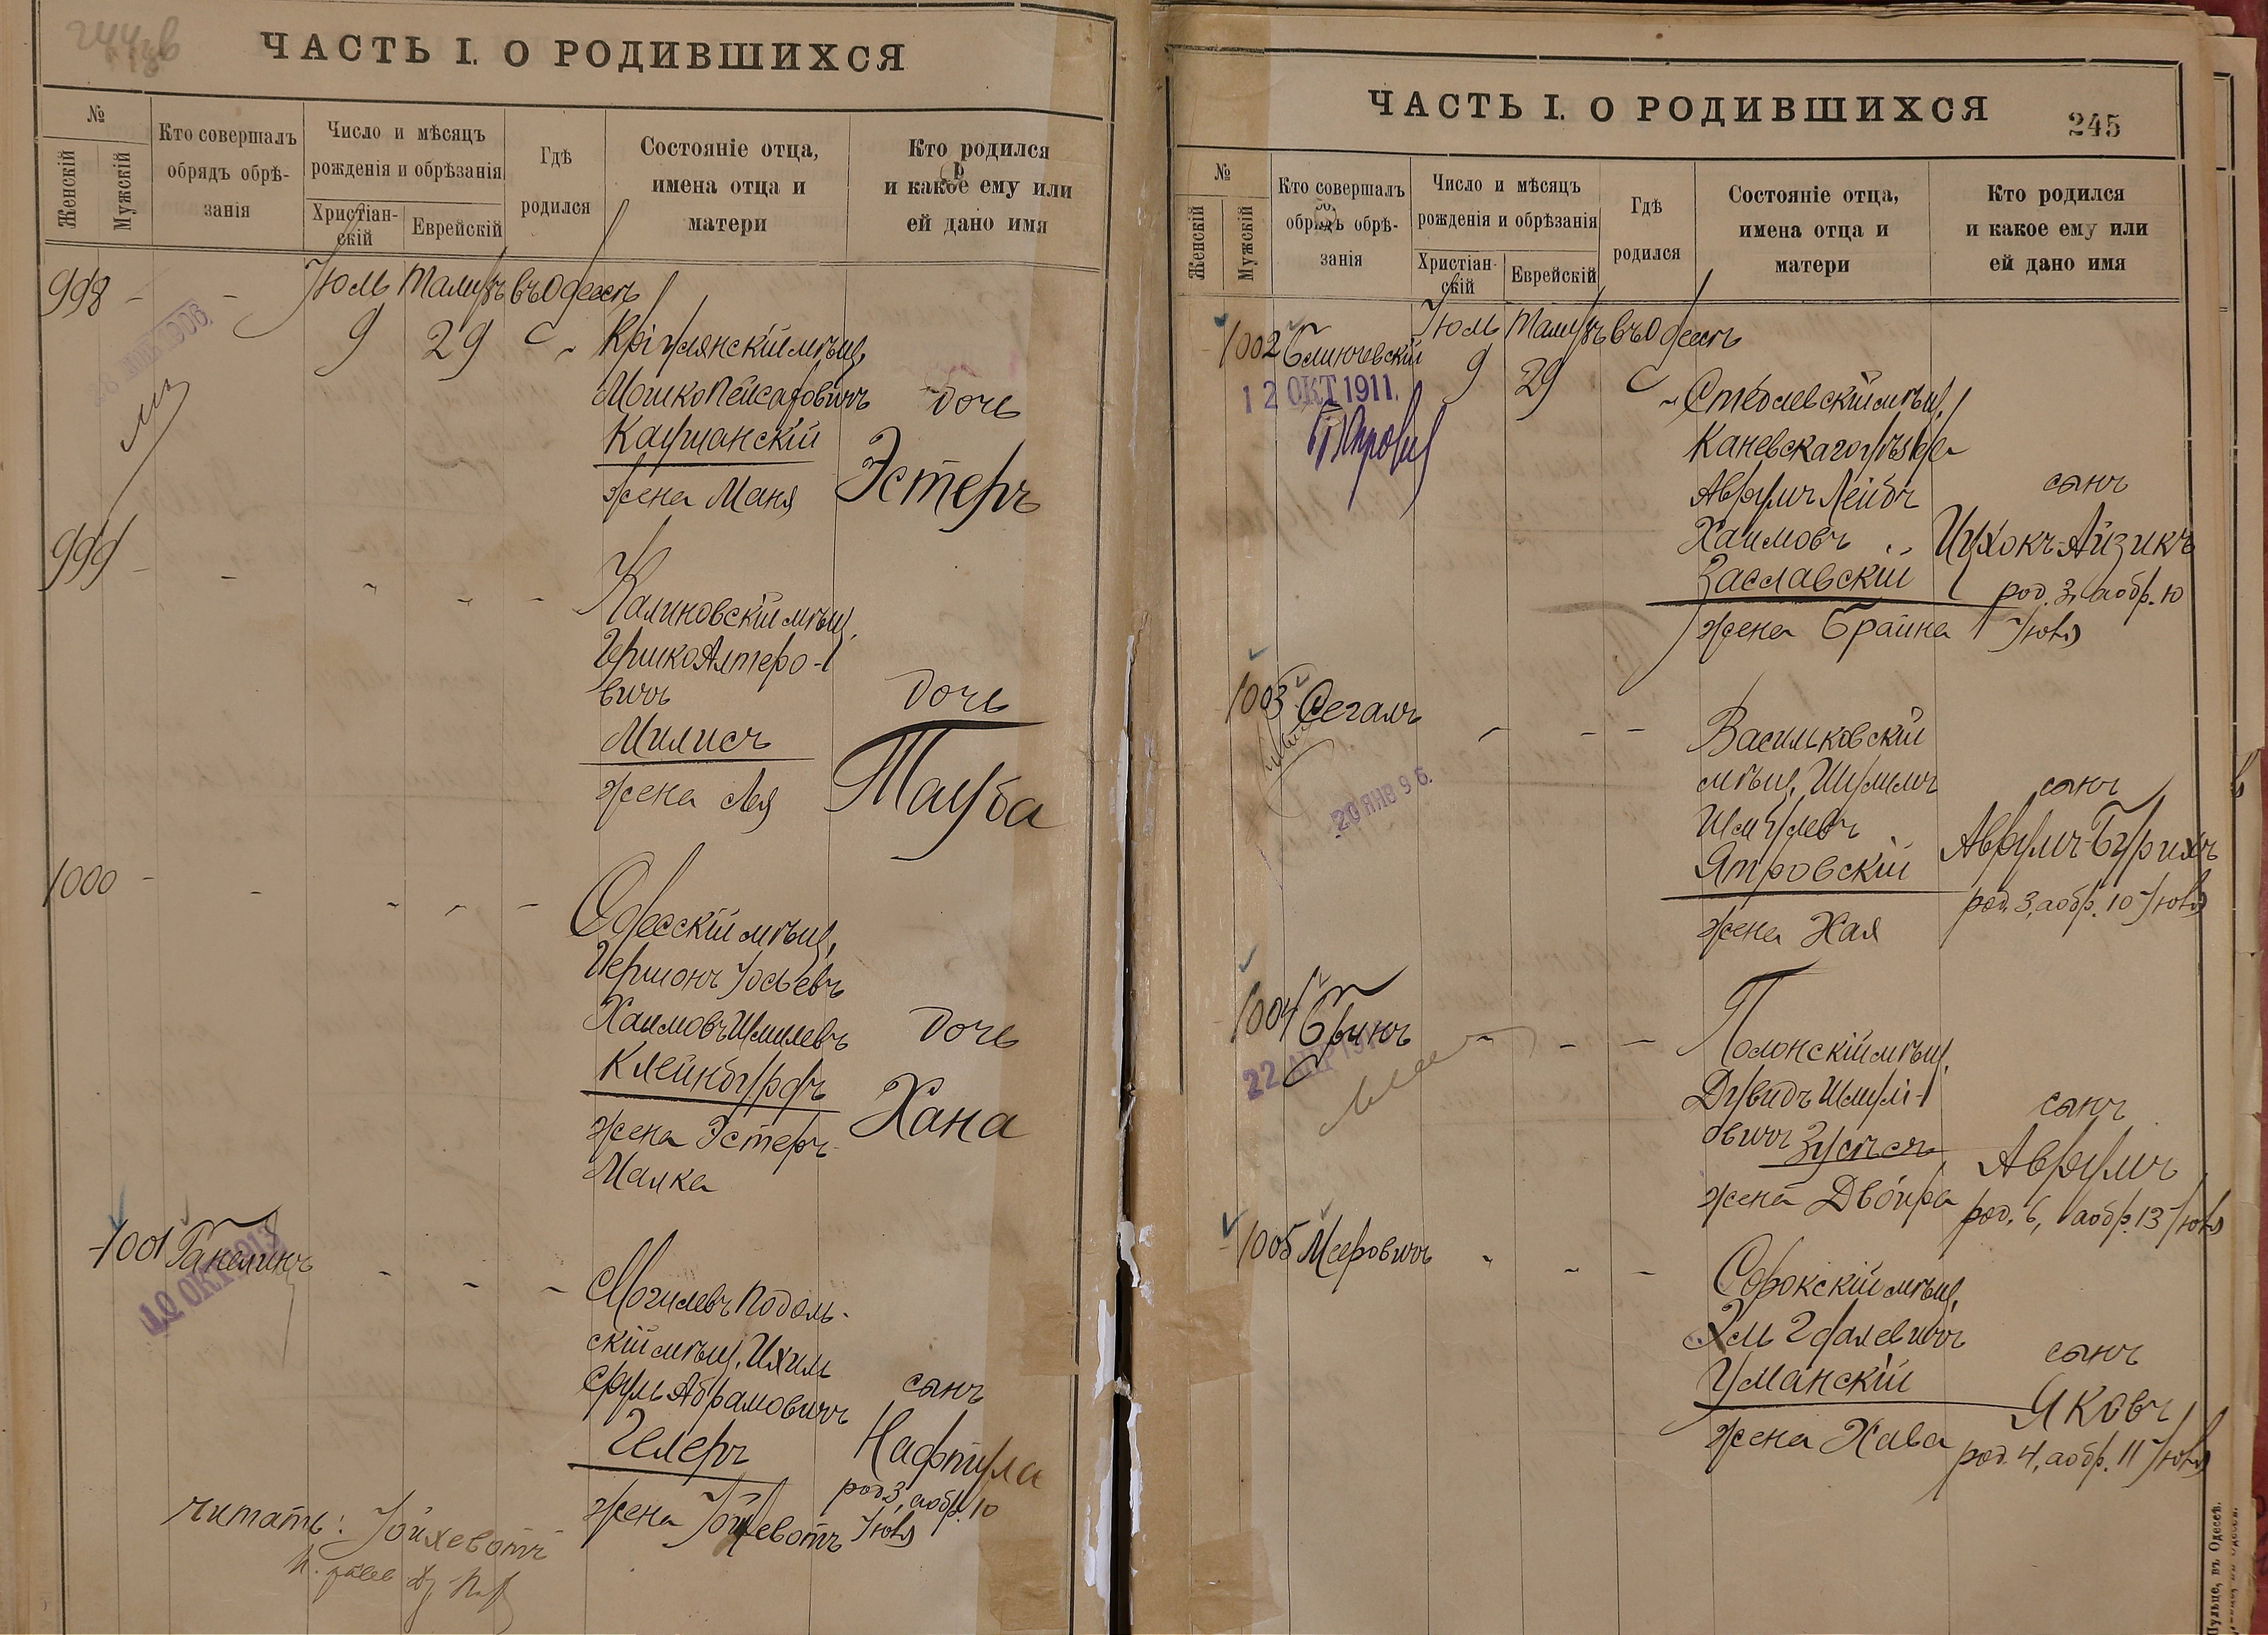 ЧАСТЬ I. О РОДИВШИХСЯ
№
Женскій
Мужскій
Кто совершалъ
обрядъ обрѣ-
занія
Число и мѣсяцъ
рожденія и обрѣзанія
Христіан-
скій
Еврейскій
Гдѣ
родился
Состояніе отца,
имена отца и
матери
Кто родился
и какое ему или
ей дано имя
998 - - Іюль Тамузъ въ Одессѣ
9 29
мѣщ.
Мошко Пейсаховичъ
Каушанскій
жена Маня
дочь
Эстеръ
999 - - - - -
Калиновскій мѣщ.
Гершко Алтеро-
вичъ
Милисъ
жена Лея
дочь
Тауба
1000 - - - - -
Одесскій мѣщ.
Гершонъ Іосьевъ
Хаимовъ Шмилевъ
Клейнбурдъ
жена Эстеръ-
Малка
дочь
Хана
1001 Ганелинъ - - -
12 ОКТ 1913
Могилевъ Подоль-
скій мѣщ. Ихил
Абрамовичъ
Гелеръ
жена
сынъ
Нафтула
род. 3, а обр. 10
Іюля
читать: Іойхевотъ
ЧАСТЬ I. О РОДИВШИХСЯ
245
№
Женскій
Мужскій
Кто совершалъ
обрядъ обрѣ-
занія
Число и мѣсяцъ
рожденія и обрѣзанія
Христіан-
скій
Еврейскій
Гдѣ
родился
Состояніе отца,
имена отца и
матери
Кто родился
и какое ему или
ей дано имя
1002 Блинчевскій Іюль Тамузъ въ Одессѣ
9 29
12 ОКТ 1911.
мѣщ.
Каневскаго уѣзда
Аврумъ Лейбъ
Хаимовъ
Заславскій
жена Брайна
сынъ
Ицхокъ-Айзикъ
род. 3, а обр. 10
Іюля
1003 Сегалъ - - -
20 ЯНВ 96.
Васильковскій
мѣщ. Шулимъ
Шмулевъ
Ятровскій
жена Хая
сынъ
Аврумъ-Бурихъ
род. 3, а обр. 10 Іюля
1004 - - -
22 АПР
Полонскій мѣщ.
Дувидъ Шмулі-
овичъ
жена Двойра
сынъ
Аврумъ
род. 6, а обр. 13 Іюля
1005 Мееровичъ - - -
Сорокскій мѣщ.
Уманскій
жена Хава
сынъ
Яковъ
род. 4, а обр. 11 Іюля